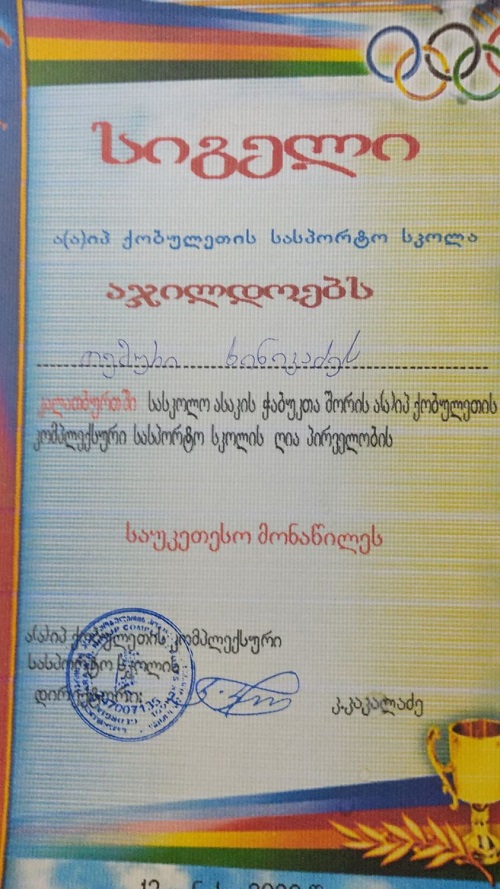 სიგელი
ა(ა)იპ ქობულეთის სასპორტო სკოლა
აჯილდოებს
თემური ხინიკაძეს
კალათბურთში სასკოლო ასაკის ჭაბუკთა შორის ა(ა)იპ ქობულეთის
კომპლექსური სასპორტო სკოლის ღია პირველობის
საუკეთესო მონაწილეს
ა(ა)იპ ქობულეთის კომპლექსური
სასპორტო სკოლის
დირექტორი:
კ.კაკალაძე